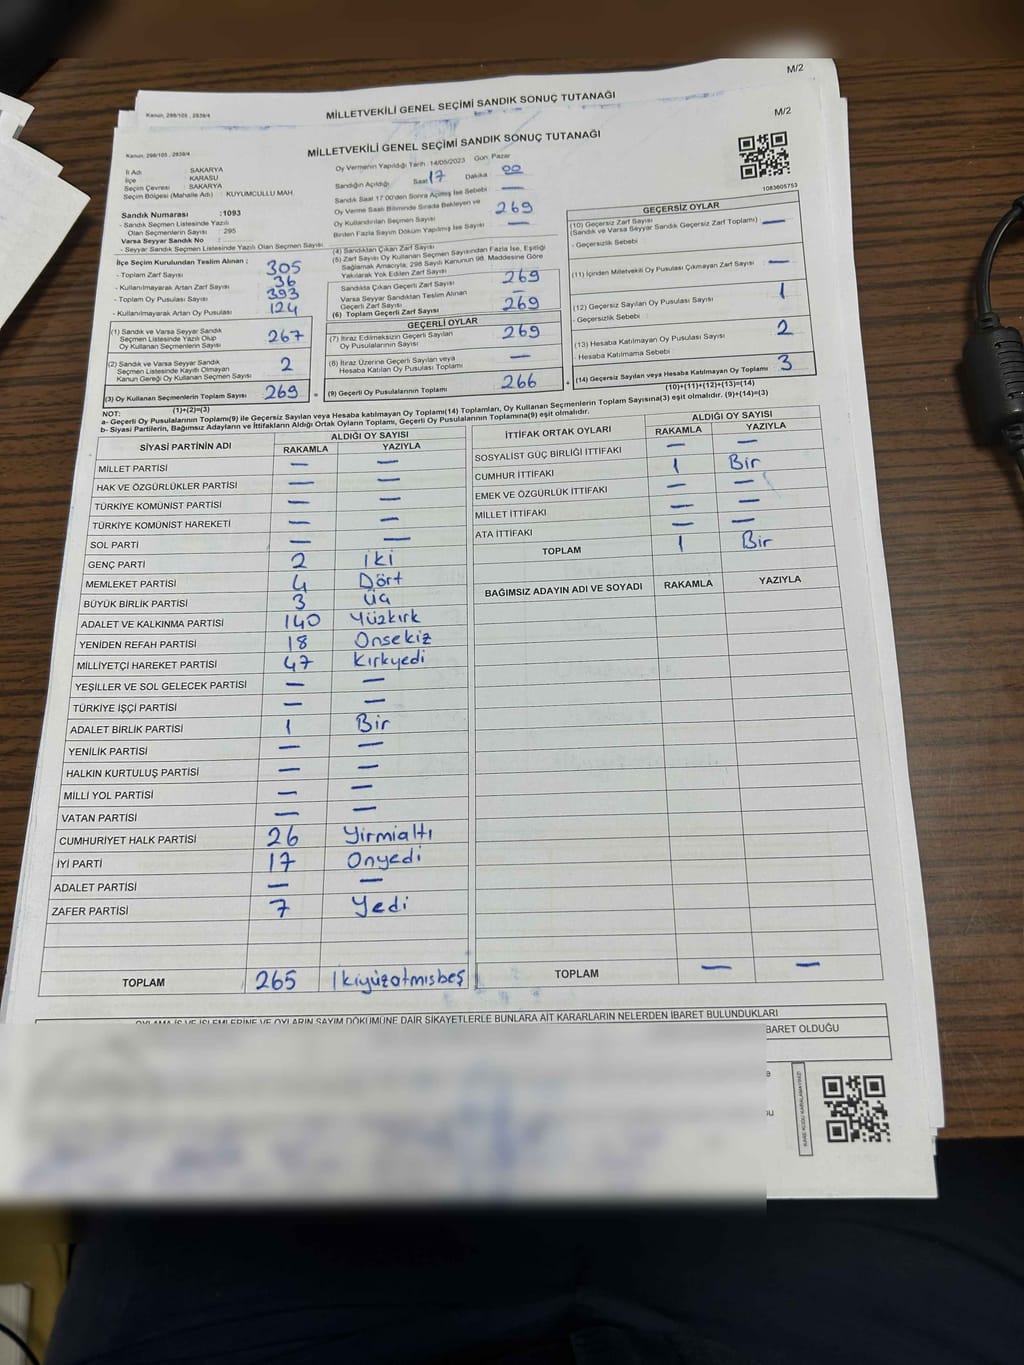 M/2
Kanun, 298/105 , 2839/4
MİLLETVEKİLİ GENEL SEÇİMİ SANDIK SONUÇ TUTANAĞI
M/2
Kanun, 298/105 , 2839/4
MİLLETVEKİLİ GENEL SEÇİMİ SANDIK SONUÇ TUTANAĞI
1083605753
İl Adı SAKARYA
İlçe KARASU
Seçim Çevresi : SAKARYA
Seçim Bölgesi (Mahalle Adı) : KUYUMCULLU MAH.
Sandık Numarası : 1093
- Sandık Seçmen Listesinde Yazılı
Olan Seçmenlerin Sayısı : 295
Varsa Seyyar Sandık No :
- Seyyar Sandık Seçmen Listesinde Yazılı Olan Seçmen Sayısı
İlçe Seçim Kurulundan Teslim Alınan ;
- Toplam Zarf Sayısı 305
- Kullanılmayarak Artan Zarf Sayısı 36
- Toplam Oy Pusulası Sayısı 393
- Kullanılmayarak Artan Oy Pusulası 124
(1) Sandık ve Varsa Seyyar Sandık
Seçmen Listesinde Yazılı Olup
Oy Kullanan Seçmenlerin Sayısı 267
(2) Sandık ve Varsa Seyyar Sandık
Seçmen Listesinde Kayıtlı Olmayan
Kanun Gereği Oy Kullanan Seçmen Sayısı 2
(3) Oy Kullanan Seçmenlerin Toplam Sayısı 269
(1)+(2)=(3)
Oy Vermenin Yapıldığı Tarih : 14/05/2023 Gün: Pazar
Sandığın Açıldığı Saat 17 Dakika 00
Sandık Saat 17:00'den Sonra Açılmış İse Sebebi —
Oy Verme Saati Bitiminde Sırada Bekleyen ve
Oy Kullandırılan Seçmen Sayısı 269
Birden Fazla Sayım Dökümü Yapılmış İse Sayısı —
(4) Sandıktan Çıkan Zarf Sayısı
(5) Zarf Sayısı Oy Kullanan Seçmen Sayısından Fazla İse, Eşitliği
Sağlamak Amacıyla; 298 Sayılı Kanunun 98. Maddesine Göre
Yakılarak Yok Edilen Zarf Sayısı
Sandıkta Çıkan Geçerli Zarf Sayısı 269
Varsa Seyyar Sandıktan Teslim Alınan
Geçerli Zarf Sayısı —
(6) Toplam Geçerli Zarf Sayısı 269
GEÇERLİ OYLAR
(7) İtiraz Edilmeksizin Geçerli Sayılan
Oy Pusulalarının Sayısı 269
(8) İtiraz Üzerine Geçerli Sayılan veya
Hesaba Katılan Oy Pusulası Toplamı —
= (9) Geçerli Oy Pusulalarının Toplamı 266 +
GEÇERSİZ OYLAR
(10) Geçersiz Zarf Sayısı
(Sandık ve Varsa Seyyar Sandık Geçersiz Zarf Toplamı) —
- Geçersizlik Sebebi
(11) İçinden Milletvekili Oy Pusulası Çıkmayan Zarf Sayısı —
(12) Geçersiz Sayılan Oy Pusulası Sayısı 1
- Geçersizlik Sebebi
(13) Hesaba Katılmayan Oy Pusulası Sayısı 2
- Hesaba Katılmama Sebebi
(14) Geçersiz Sayılan veya Hesaba Katılmayan Oy Toplamı 3
(10)+(11)+(12)+(13)=(14)
NOT:
a- Geçerli Oy Pusulalarının Toplamı(9) ile Geçersiz Sayılan veya Hesaba katılmayan Oy Toplamı(14) Toplamları, Oy Kullanan Seçmenlerin Toplam Sayısına(3) eşit olmalıdır. (9)+(14)=(3)
b- Siyasi Partilerin, Bağımsız Adayların ve İttifakların Aldığı Ortak Oyların Toplamı, Geçerli Oy Pusulalarının Toplamına(9) eşit olmalıdır.
SİYASİ PARTİNİN ADI ALDIĞI OY SAYISI
RAKAMLA YAZIYLA
MİLLET PARTİSİ — —
HAK VE ÖZGÜRLÜKLER PARTİSİ — —
TÜRKİYE KOMÜNİST PARTİSİ — —
TÜRKİYE KOMÜNİST HAREKETİ — —
SOL PARTİ — —
GENÇ PARTİ 2 iki
MEMLEKET PARTİSİ 4 Dört
BÜYÜK BİRLİK PARTİSİ 3 Üç
ADALET VE KALKINMA PARTİSİ 140 Yüzkırk
YENİDEN REFAH PARTİSİ 18 Onsekiz
MİLLİYETÇİ HAREKET PARTİSİ 47 Kırkyedi
YEŞİLLER VE SOL GELECEK PARTİSİ — —
TÜRKİYE İŞÇİ PARTİSİ — —
ADALET BİRLİK PARTİSİ 1 Bir
YENİLİK PARTİSİ — —
HALKIN KURTULUŞ PARTİSİ — —
MİLLİ YOL PARTİSİ — —
VATAN PARTİSİ — —
CUMHURİYET HALK PARTİSİ 26 Yirmialtı
İYİ PARTİ 17 Onyedi
ADALET PARTİSİ — —
ZAFER PARTİSİ 7 Yedi
TOPLAM 265 İkiyüzatmışbeş
İTTİFAK ORTAK OYLARI ALDIĞI OY SAYISI
RAKAMLA YAZIYLA
SOSYALİST GÜÇ BİRLİĞİ İTTİFAKI — —
CUMHUR İTTİFAKI 1 Bir
EMEK VE ÖZGÜRLÜK İTTİFAKI — —
MİLLET İTTİFAKI — —
ATA İTTİFAKI — —
TOPLAM 1 Bir
BAĞIMSIZ ADAYIN ADI VE SOYADI RAKAMLA YAZIYLA
TOPLAM — —
OYLAMA İŞ VE İŞLEMLERİNE VE OYLARIN SAYIM DÖKÜMÜNE DAİR ŞİKAYETLERLE BUNLARA AİT KARARLARIN NELERDEN İBARET BULUNDUKLARI
BARET OLDUĞU
KARE KODU KARALAMAYINIZ!